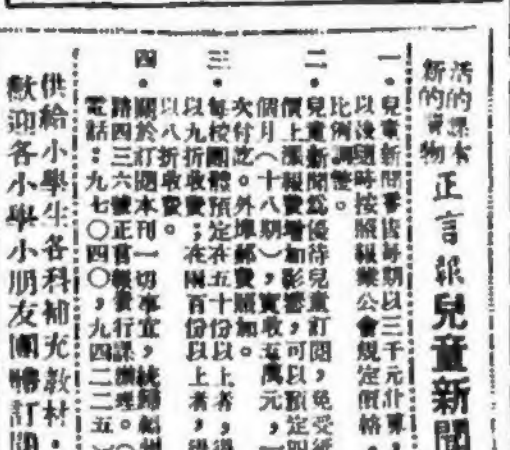 活的課本
新的書物
正言報兒童新聞
一．兒童新聞暫售每期以三千元計算，
以後隨時按照報業公會規定價格，
比例調整。
二．兒童新聞爲優待兒童訂閱，免受紙
價上漲報費增加影響，可以預定四
個月（十八期），實收五萬元，一
次付訖。外埠郵費照加。
三．每按團體預定在五十份以上者，得
以九折收費，在兩百份以上者，得
以八折收費。
四．關於訂閱本刊一切事宜，統歸福州
路四三六號正言報發行課辦理。（
電話：九七〇四〇，九四二二五）
供給小學生各科補充敎材．
歡迎各小學小朋友團體訂閱